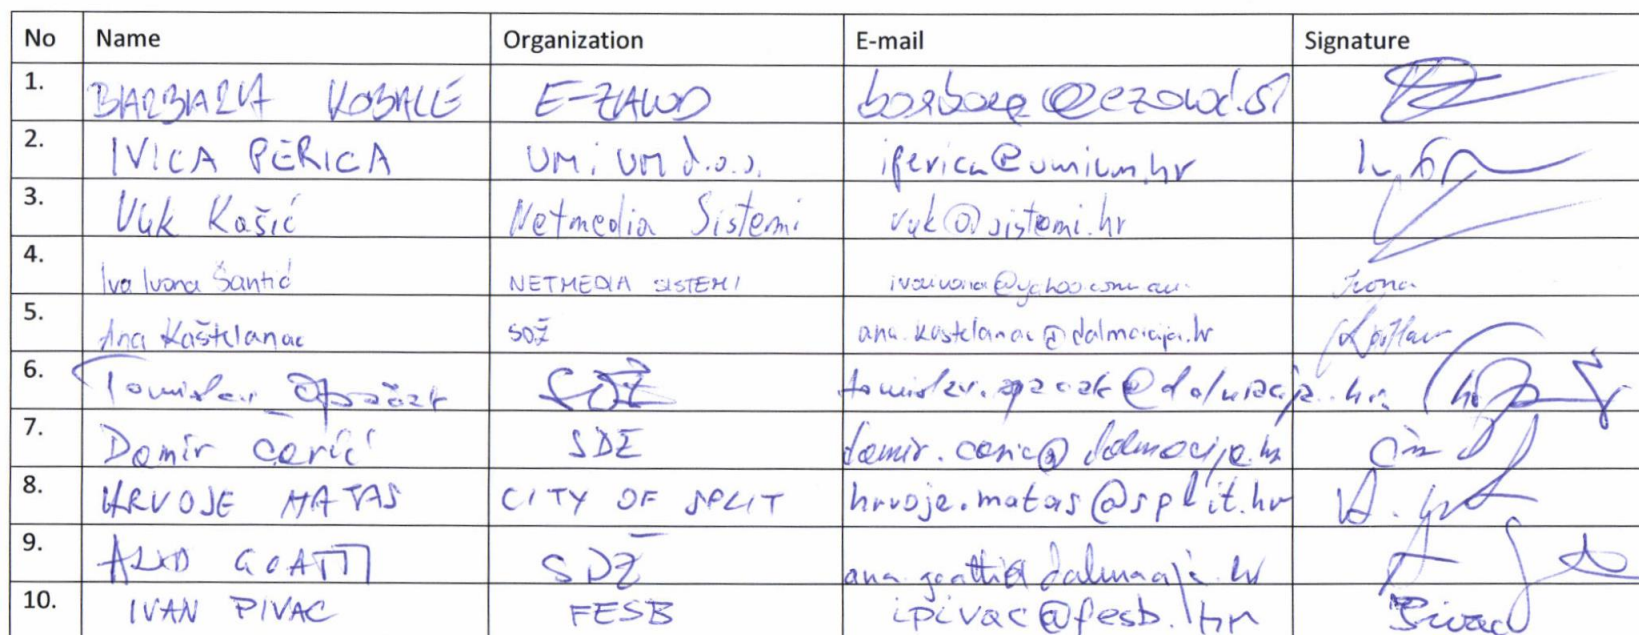 No Name Organization E-mail Signature
1. BARBARA KOBALE E-ZAVOD barbara@ezavod.si
2. IVICA PERICA UM i UM d.o.o. iperica@umium.hr
3. Vuk Kašić Netmedia Sistemi vuk@sistemi.hr
4. Iva Ivana Šantić NETMEDIA SISTEMI ivaivana@yahoo.com.au Ivona
5. Ana Kaštelanac SDŽ ana.kastelanac@dalmacija.hr
6. Tomislav SDŽ
7. Damir Carić SDŽ damir.caric@dalmacija.hr
8. HRVOJE MATAS CITY OF SPLIT hrvoje.matas@split.hr
9. GOATTI SDŽ ana.goatti@dalmacija.hr
10. IVAN PIVAC FESB ipivac@fesb.hr Pivac